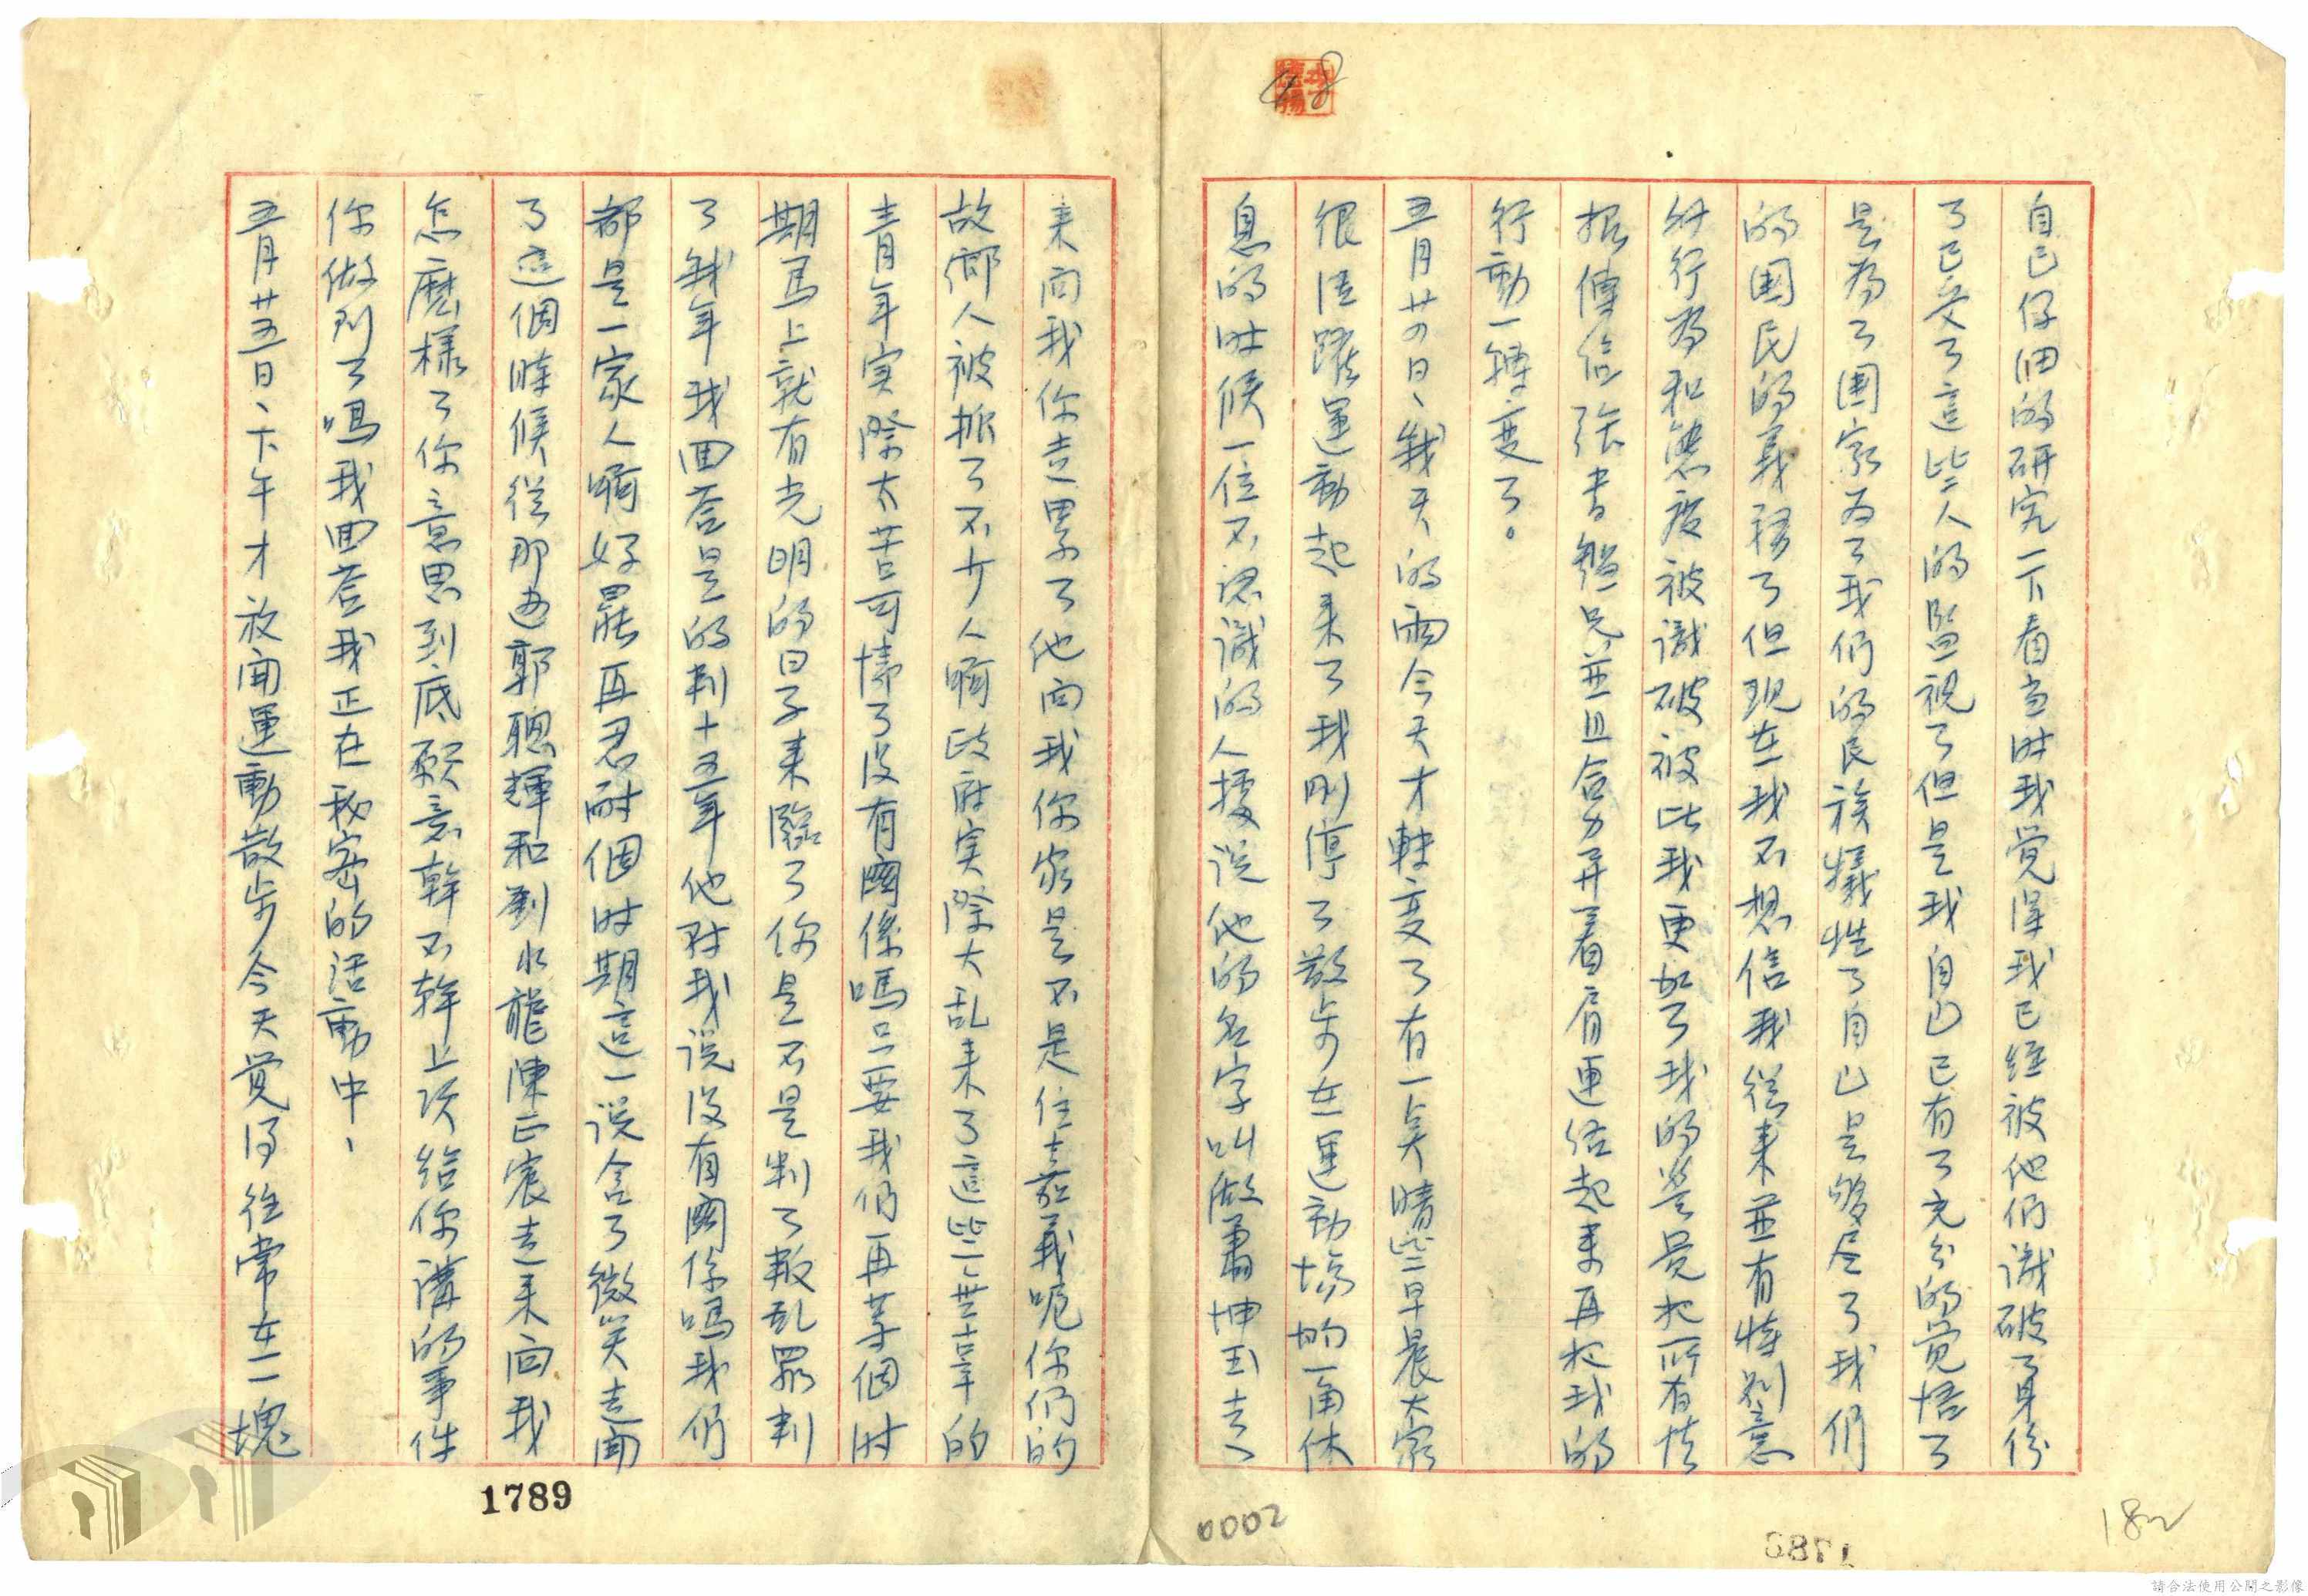 自己仔細的研究一下看当时我覚得我已経被他们識破了身份
了已受了這些人的監視了但是我自己已有了充分的覚悟了
是为了国家为了我们的民族犧牲了自己是够尽了我们
的国民的義務了但現在我不想信我從来並有特别意
行为和態度被識破被此我更加了我的警覚把所有情
报傳給張書 兄並且合力并着肩連絡起来再把我的
行動一轉变了。
五月廿四日、我天的雨今天才轉变了有一点晴些早晨大家
很活躍運動起来了我刚停了散步在運動場的一角休
息的时候一位不認識的人據説他的名字叫做蕭坤玉去、
来向我你連累了他向我你家是不是住嘉義呢你们的
故鄉人被抓了不少人啊政府実際大乱来了這些無辜的
青年実際太苦可憐了没有関係嗎只要我们再等個时
期馬上就有光明的日子来臨了你是不是判了叛乱罪判
了我年我回答是的判十五年他对我説没有関係嗎我们
都是一家人啊好罷再忍耐個时期這一説含了微笑走開
了這個時候從那边郭聰輝和劉水龍陳正宸走来向我
怎麽樣了你意思到底願意幹不幹上次给你講的事件
你做到了嗎我回答我正在秘密的活動中、
五月廿五日、下午才放開運動散步今天覚得往常在一塊
1789
0002
182
請合法使用公開之影像